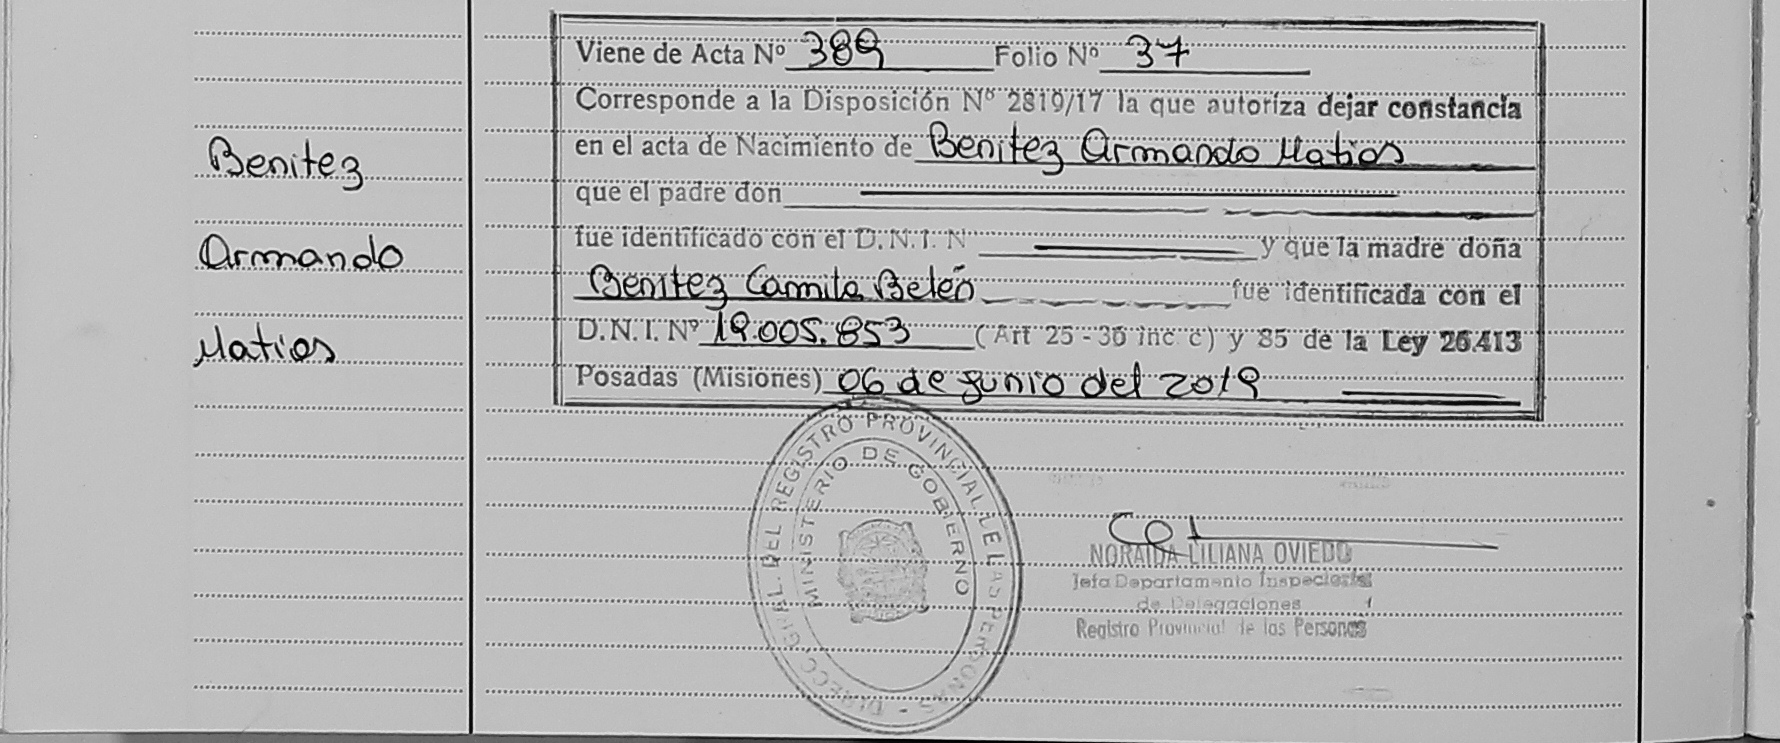 Benitez
Armando
Matias
Viene de Acta Nº 389 Folio Nº 37
Corresponde a la Disposición Nº 2819/17 la que autoriza dejar constancia
en el acta de Nacimiento de Benitez Armando Matias
que el padre don
fue identificado con el D.N.I. N y que la madre doña
Benitez Camila Belén fue identificada con el
D.N.I. Nº 19.005.853 (Art 25-36 inc c) y 85 de la Ley 26.413
Posadas (Misiones) 06 de junio del 2019
DIRECC. GRAL. DEL REGISTRO PROVINCIAL DE LAS PERSONAS
MINISTERIO DE GOBIERNO
NORAIDA LILIANA OVIEDO
Jefa Departamento Inspección
de Delegaciones
Registro Provincial de las Personas